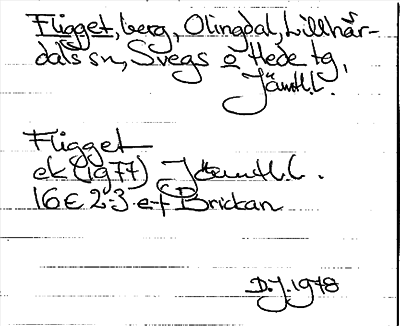 Fligget, berg, Olingdal, Lillhär-
dals sn, Svegs o Hede tg,
Jämtl.l.
Fligget
ek (1977) Jämtl.l.
16E 2-3 e-f Brickan
D.J. 1978